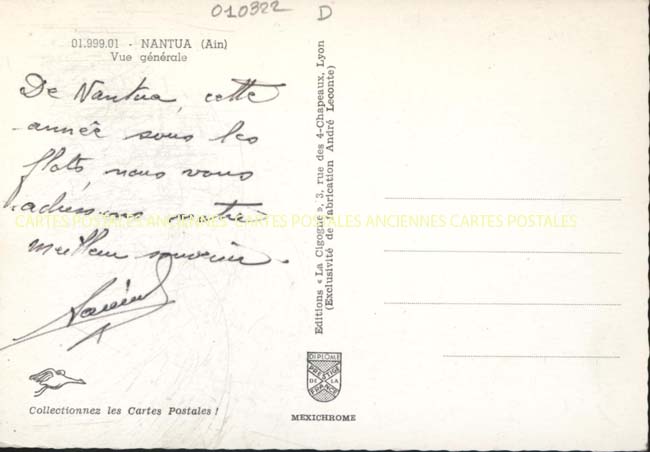 010322 D
01.999.01 - NANTUA (Ain)
Vue générale
De Nantua, cette
année sous les
flots, nous vous
adressons notre
meilleur souvenir.
CARTES POSTALES ANCIENNES CARTES POSTALES ANCIENNES CARTES POSTALES
Collectionnez les Cartes Postales !
Editions « La Cigogne », 3, rue des 4-Chapeaux, Lyon
(Exclusivité de fabrication André Leconte)
DIPLOME
PRESTIGE
DE LA
FRANCE
MEXICHROME